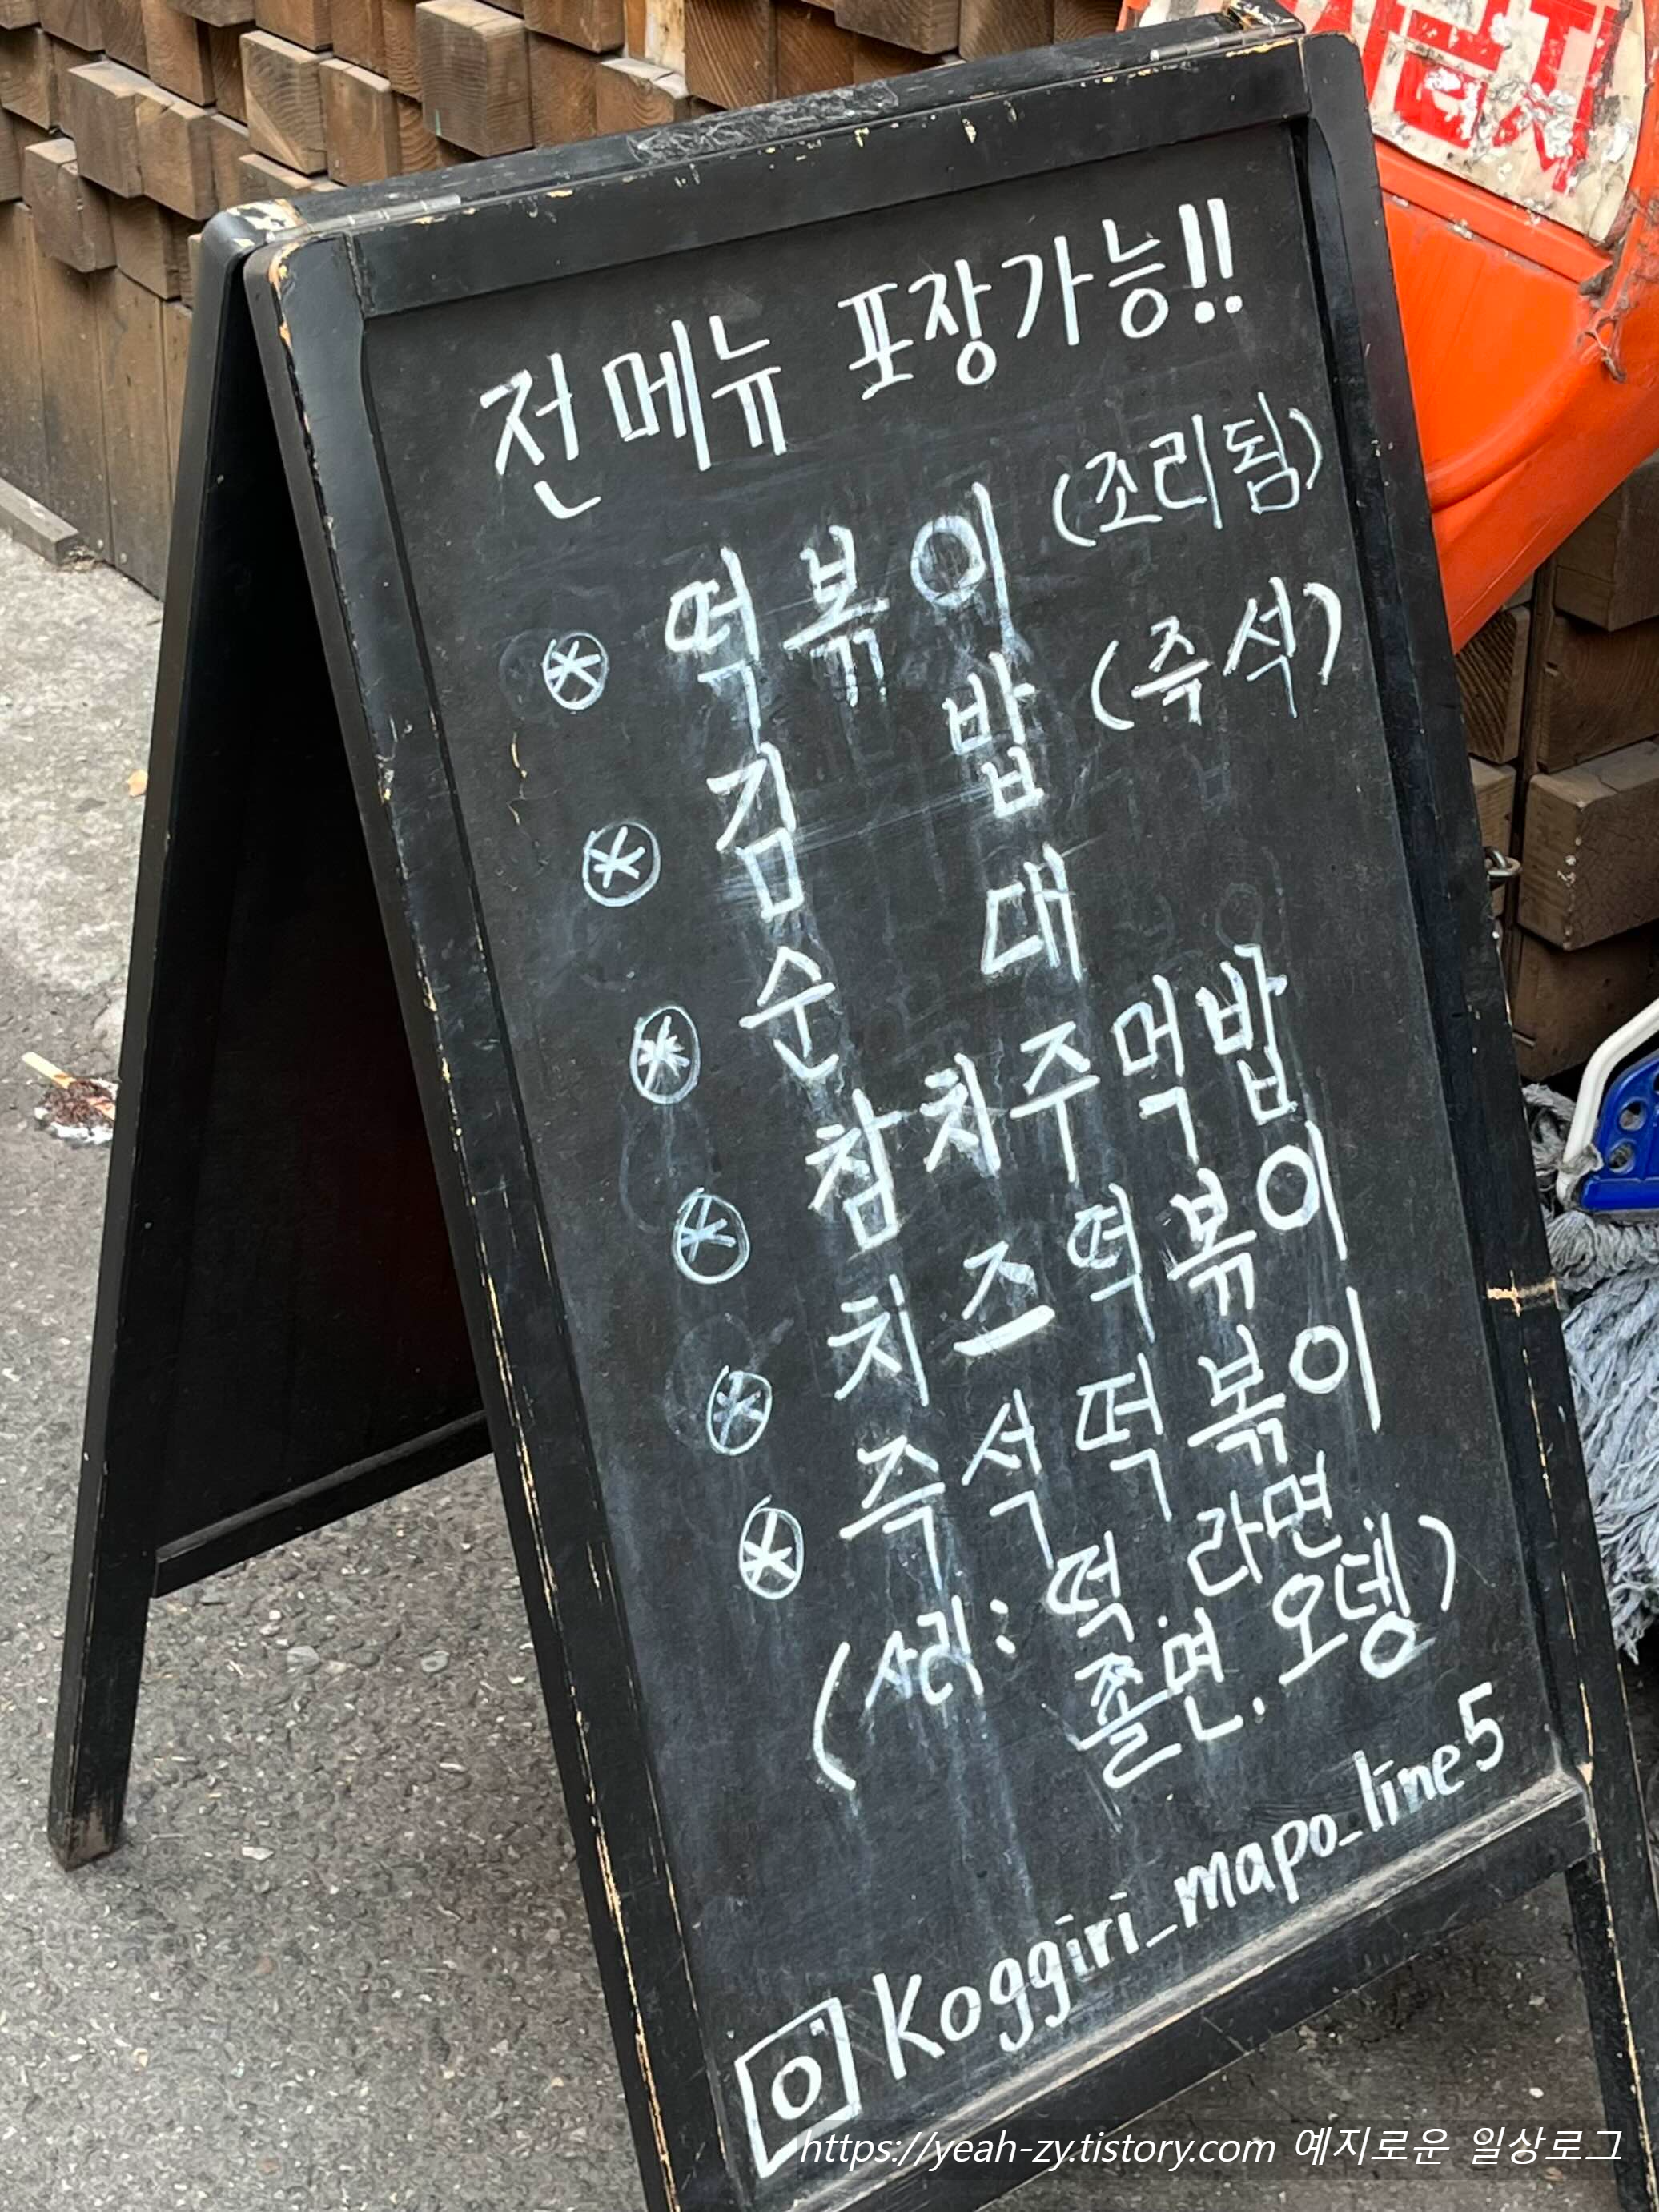 전메뉴 포장가능!!
떡볶이 (조리됨)
(즉석)
김밥
순대
참치주먹밥
치즈떡볶이
즉석떡볶이
(사리: 떡. 라면
쫄면. 오뎅)
Koggiri_mapo_line5
https://yeah-zy.tistory.com 예지로운 일상로그